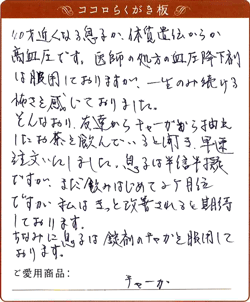 ココロらくがき板
40才近くなる息子が、体質遺伝からか
高血圧です。医師の処方の血圧降下剤
は服用しておりますが、一生のみ続ける
怖さを感じておりました。
そんなおり、友達からチャーガから抽出
したお茶を飲んでいると聞き、早速
注文いたしました。息子は半信半疑
ですが、まだ飲みはじめて2ヶ月位
ですが私はきっと改善されると期待
しております。
ちなみに息子は錠剤のチャーガを服用して
おります。
ご愛用商品:
チャーガ